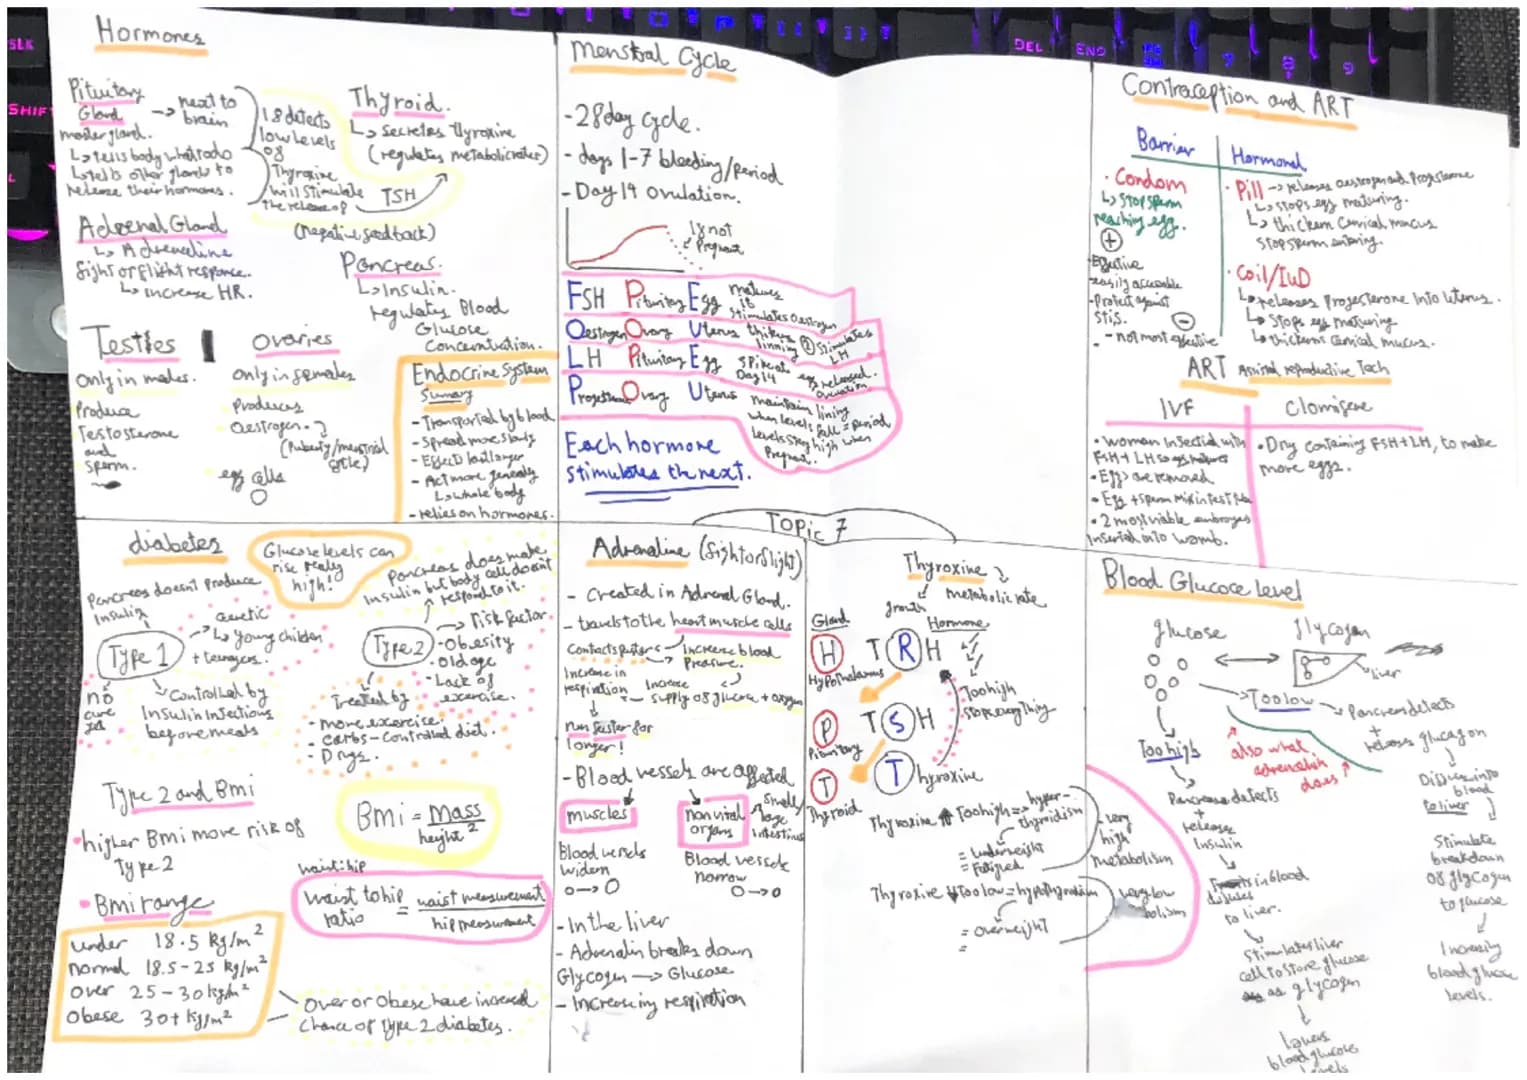 Hormones
Pituitary
Gland
-> next to
brain
master gland.
↳ tells body what to do
↳ tells other glands to
release their hormones.
18 detects
low levels
of
Thyroxine
will stimulate
the release of
TSH
(negative feedback)
Thyroid.
↳ secretes thyroxine
(regulates metabolic rates)
Adrenal Gland
↳ Adrenaline
fight or flight response.
↳ increase HR.
Pancreas.
↳ Insulin.
regulates Blood
Glucose
Concentration.
Testies
Only in males.
Produce
Testosterone
and
sperm.
Ovaries
only in females
Produces
Oestrogen.
(Puberty/menstrual
cycle)
egg cells
Endocrine System
Sumary
- Transported by blood
- Spread more slowly
- Effect last longer
- Act more generally
↳ whole body
- relies on hormones.
Menstral Cycle
- 28 day cycle.
- days 1-7 bleeding/period
- Day 14 ovulation.
If not
Pregnant
FSH Pituitary Egg matures
it
stimulates oestrogen
Oestrogen Ovary Uterus thikens
linning + stimulates
LH
LH Pituitary Egg spike at
Day 14 egg released.
ovulation
Progesterone Ovary Uterus maintain lining
when levels fall = period
levels stay high when
Pregnant.
Each hormone
stimulates the next.
Contraception and ART
Barrier
Hormonal
• Condom
↳ stop sperm
reaching egg.
+
- Effective
- easily accessable
- Protect against
STIs.
-
- not most effective
• Pill -> releases oestrogen and Progesterone
↳ stops egg maturing.
↳ thickens Cervical mucus
stop sperm entering.
• Coil/IUD
↳ releases Progesterone Into Uterus.
↳ stops egg maturing
↳ thickens Cervical mucus.
ART Assisted reproductive Tech
IVF
• woman Injected with
FSH + LH so egg matures
• Eggs are removed
• Egg + sperm Mix in test tube
• 2 most viable embroyes
Inserted into womb.
Clomifene
• Drug containing FSH+LH, to make
more eggs.
Topic 7
diabetes
Glucose levels can
rise really
high!
Pancreas doesn't produce
insulin
Type 1
Genetic
↳ Young children
+ teenagers.
no
cure
yet
Controlled by
Insulin Injections
before meals
Pancreas does make
Insulin but body cell doesn't
respond to it.
Type 2
-> Risk factor
- Obesity
- old age
- Lack of
exercise.
Treated by
- more exercise.
- carbs - controlled diet.
- Drugs.
Type 2 and Bmi
• higher Bmi more risk of
Type 2
Bmi = mass
height²
waist:hip
waist to hip
ratio
= waist measurement
hip measurement
• Bmi range
under 18.5 kg/m²
normal 18.5-25 kg/m²
over 25-30 kg/m²
Obese 30+ kg/m²
over or obese have increased
chance of Type 2 diabetes.
Adrenaline (fight or flight)
- Created in Adrenal Gland.
- travels to the heart muscle cells
contracts faster
Increase blood
Pressure.
Increase in
respiration
Increase
supply of glucose + oxygen
run faster for
longer!
- Blood vessels are affected
muscles
non vital
organs
small/
large
intestines
Blood vessels
widen
Blood vessels
narrow
- In the liver
- Adrenalin breaks down
Glycogen -> Glucose
- Increasing respiration
Thyroxine
growth
metabolic rate
Gland
Hormone
H TRH
Hypothalamus
P TSH
Pituitary
T Thyroxine
Thyroid
Too high
stop everything
Thyroxine ↑ Too high = hyper-
thyroidism
= underweight
= Fatigued
very
high
metabolism
Thyroxine ↓ Too low = hypothyroidism
= overweight
=
very low
Blood Glucose level
glucose
glycogen
liver
Too high
Too low
also what
adrenalin
does
Pancreas detects
+
release
Insulin
in blood
diffuses
to liver.
Stimulates liver
cell to store glucose
as glycogen
lowers
blood glucose
levels
Pancreas detects
+
release glucagon
Diffuses into
blood
to liver
Stimulate
breakdown
of glycogen
to glucose
Increasing
blood glucose
levels.
SLK
SHIFT
DEL
END